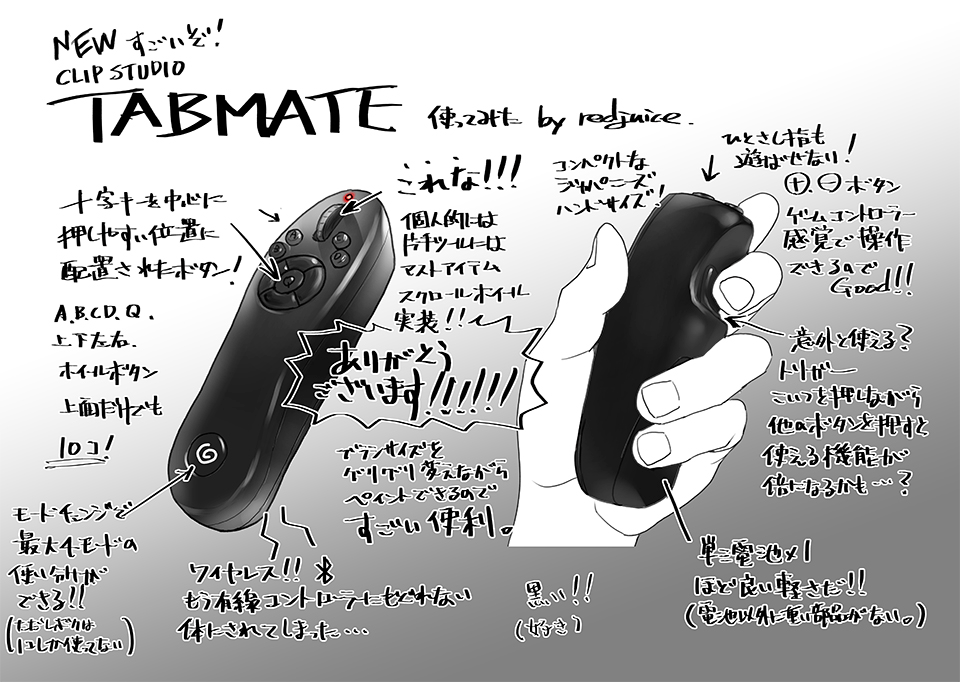 NEW すごいぞ!
CLIP STUDIO
TABMATE
使ってみた by redjuice.
十字キーを中心に
押しやすい位置に
配置されたボタン!
A.B.C.D.Q.
上下左右.
ホイールボタン
上面だけでも
10コ!
これな!!!
個人的には
片手ツールには
マストアイテム
スクロールホイール
実装!!
ありがとう
ございます!!!!!!!
ブラシサイズを
グリグリ変えながら
ペイントできるので
すごい便利。
モードチェンジで
最大4モードの
使い分けが
できる!!
(ただしボクは
1コしか使ってない)
ワイヤレス!!
もう有線コントローラにもどれない
体にされてしまった…
コンペクトな
ジャパニーズ
ハンドサイズ!
ひとさし指も
遊ばせない!
⊕,⊖ボタン
ゲームコントローラー
感覚で操作
できるので
Good!!
意外と使える?
トリガー
こいつを押しながら
他のボタンを押すと
使える機能が
倍になるかも…?
単三電池×1
ほど良い軽さだ!!
(電池以外に重い部品がない。)
黒い!!
(好き)